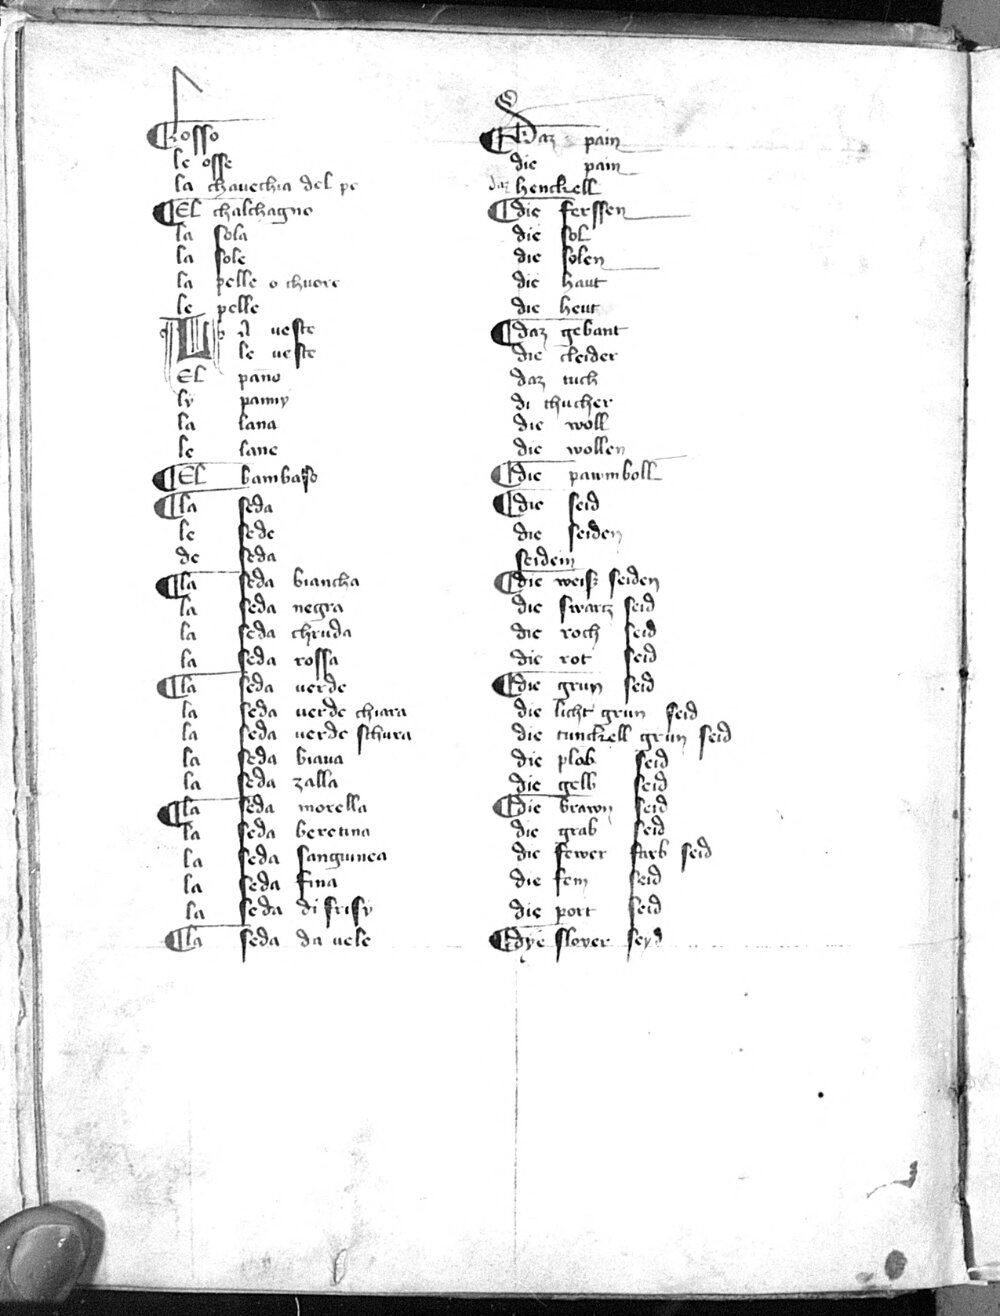 Losso daz pain
le osse die pain
la chauechia del pe daz henckell
El chalchagno die ferssen
la sola die sol
la sole die solen
la pelle o chuore die haut
le pelle die heut
LA ueste daz gebant
le ueste die cleider
El pano daz tuch
ly panny di thucher
la lana die woll
le lane die wollen
El bambaso die pawmboll
la seda die seid
le sede die seiden
de seda seidein
la seda biancha die weiß seiden
la seda negra die swartz seid
la seda chruda die roch seid
la seda rossa die rot seid
la seda uerde die grun seid
la seda uerde chiara die licht grun seid
la seda uerde schura die tunckell grun seid
la seda biaua die plab seid
la seda zalla die gelb seid
la seda morella die brawn seid
la seda beretina die grab seid
la seda sanguinea die fewer farb seid
la seda fina die fein seid
la seda di frisy die port seid
la seda da uele dye sloyer seyd